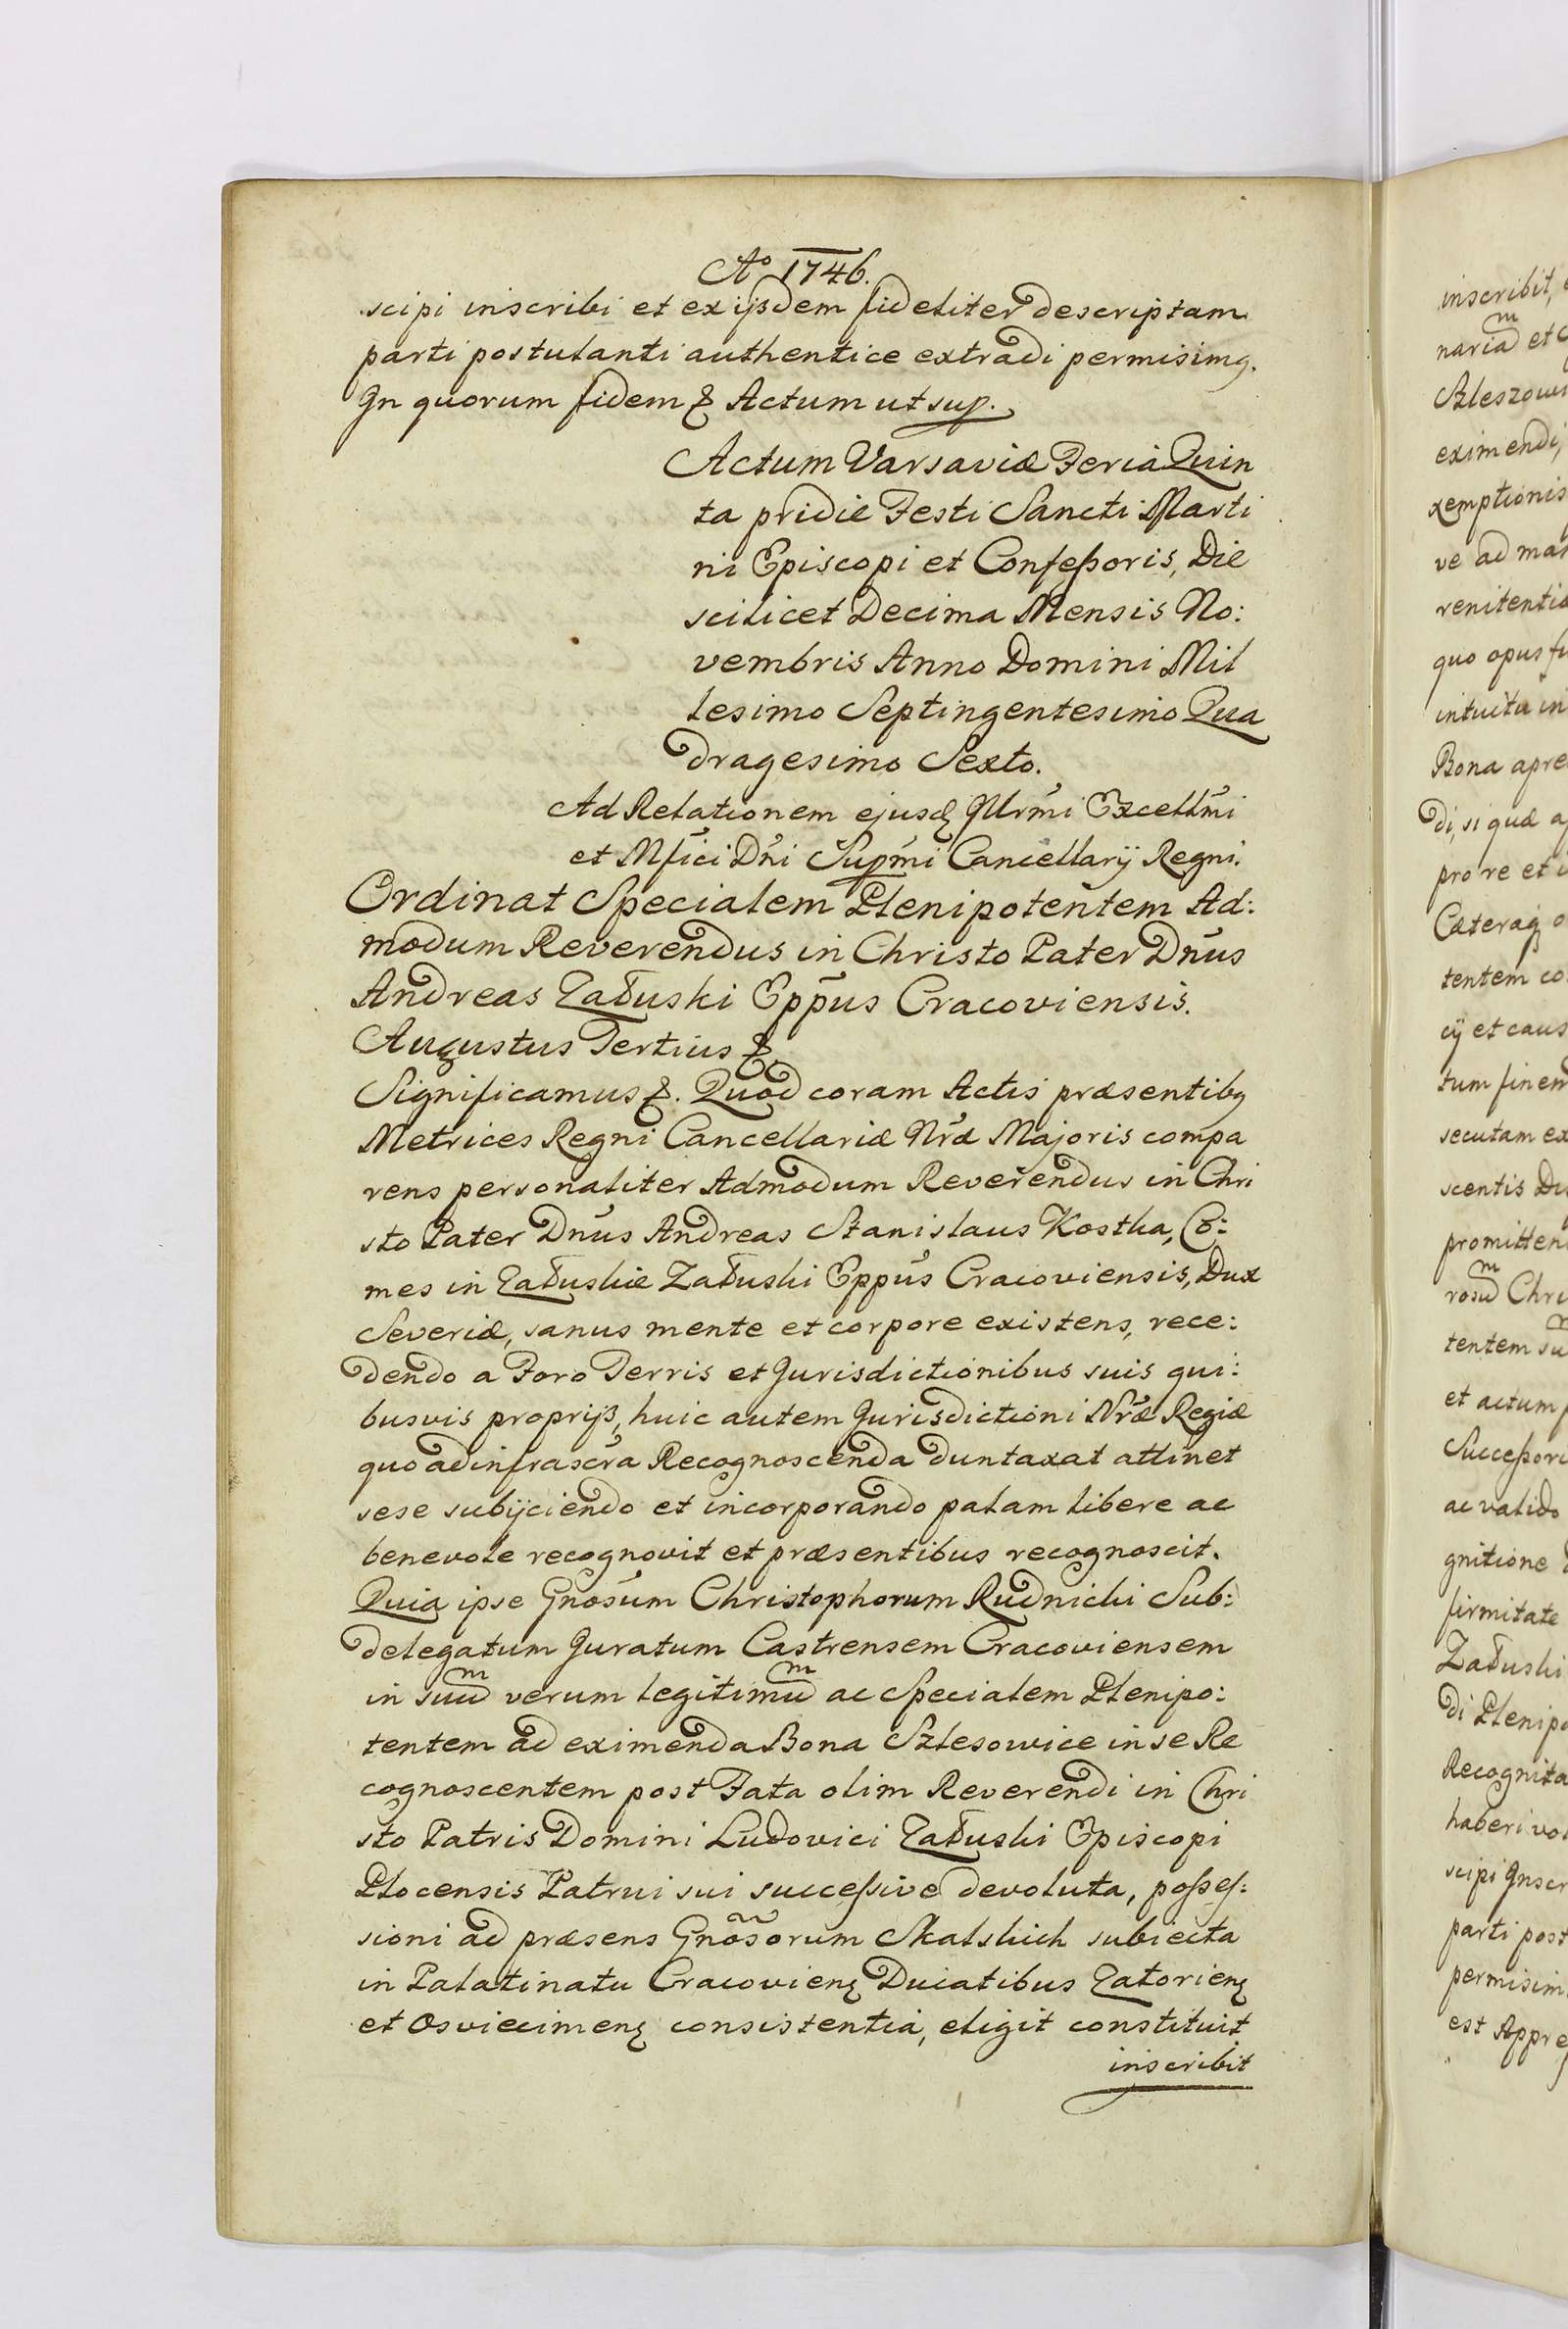 Aº 1746.
scipi inscribi et ex ijsdem fideliter descriptam
parti postulanti authentice extradi permisimꝰ.
In quorum fidem & Actum ut sup.
Actum Varsaviæ Feria Quin
ta pridie Festi Sancti Marti
ni Episcopi et Confeßoris, Die
scilicet Decima Mensis No:
vembris Anno Domini Mil
lesimo Septingentesimo Qua
dragesimo Sexto.
Ad Relationem ejusꝗ Illrmi Excellmi
et Mfici Dni Supmi Cancellarij Regni.
Ordinat Specialem Plenipotentem Ad:
modum Reverendus in Christo Pater Dnus
Andreas Załuski Eppus Cracoviensis.
Augustus Tertius &
Significamus &. Quod coram Actis præsentibꝰ
Metrices Regni Cancellariæ Nræ Majoris compa
rens personaliter Admodum Reverendus in Chri
sto Pater Dnus Andreas Stanislaus Kostka, Co:
mes in Załuskie Załuski Eppus Cracoviensis, Dux
Severiæ, sanus mente et corpore existens, rece:
dendo a Foro Terris et Jurisdictionibus suis qui:
busvis proprijs, huic autem Jurisdictioni Nræ Regiæ
quo ad infrascra Recognoscenda duntaxat attinet
sese subijciendo et incorporando palam libere ac
benevole recognovit et præsentibus recognoscit.
Quia ipse Gnosum Christophorum Rudnicki Sub:
delegatum Juratum Castrensem Cracoviensem
in suum verum legitimum ac Specialem Plenipo:
tentem ad eximenda Bona Szlesowice in se Re
cognoscentem post Fata olim Reverendi in Chri
sto Patris Domini Ludovici Załuski Episcopi
Plocensis Patrui sui succeßive devoluta, poßes:
sioni ad præsens Gnosorum Skalskich subiecta
in Palatinatu Cracovienꝫ Ducatibus Zatorienꝫ
et Osviecimenꝫ consistentia, eligit constituit
inscribit
inscribit,
nariam et
Szleszowi
eximendi,
xemptionis
ve ad man
renitentia
quo opus fu
intuitu in
Bona apre
di, si quæ a
pro re et
Cæteraꝗ
tentem co
cij et caus
tum finem
secutam ex
scentis Du
promitten
rosum Chri
tentem su
et actum
Succeßore
ac valido
gnitione
firmitate
Załuski
di Plenipo
Recognita
haberi vol
scipi Inscr
parti post
permisim
est Appre